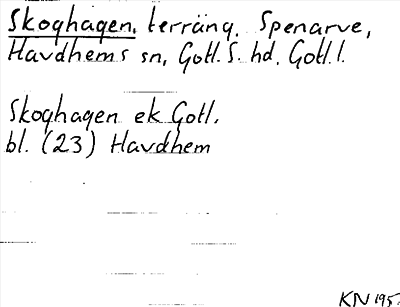 Skoghagen, terräng, Spenarve,
Havdhems sn, Gotl. S. hd, Gotl. l.
Skoghagen ek Gotl.
bl. (23) Havdhem
KN 195